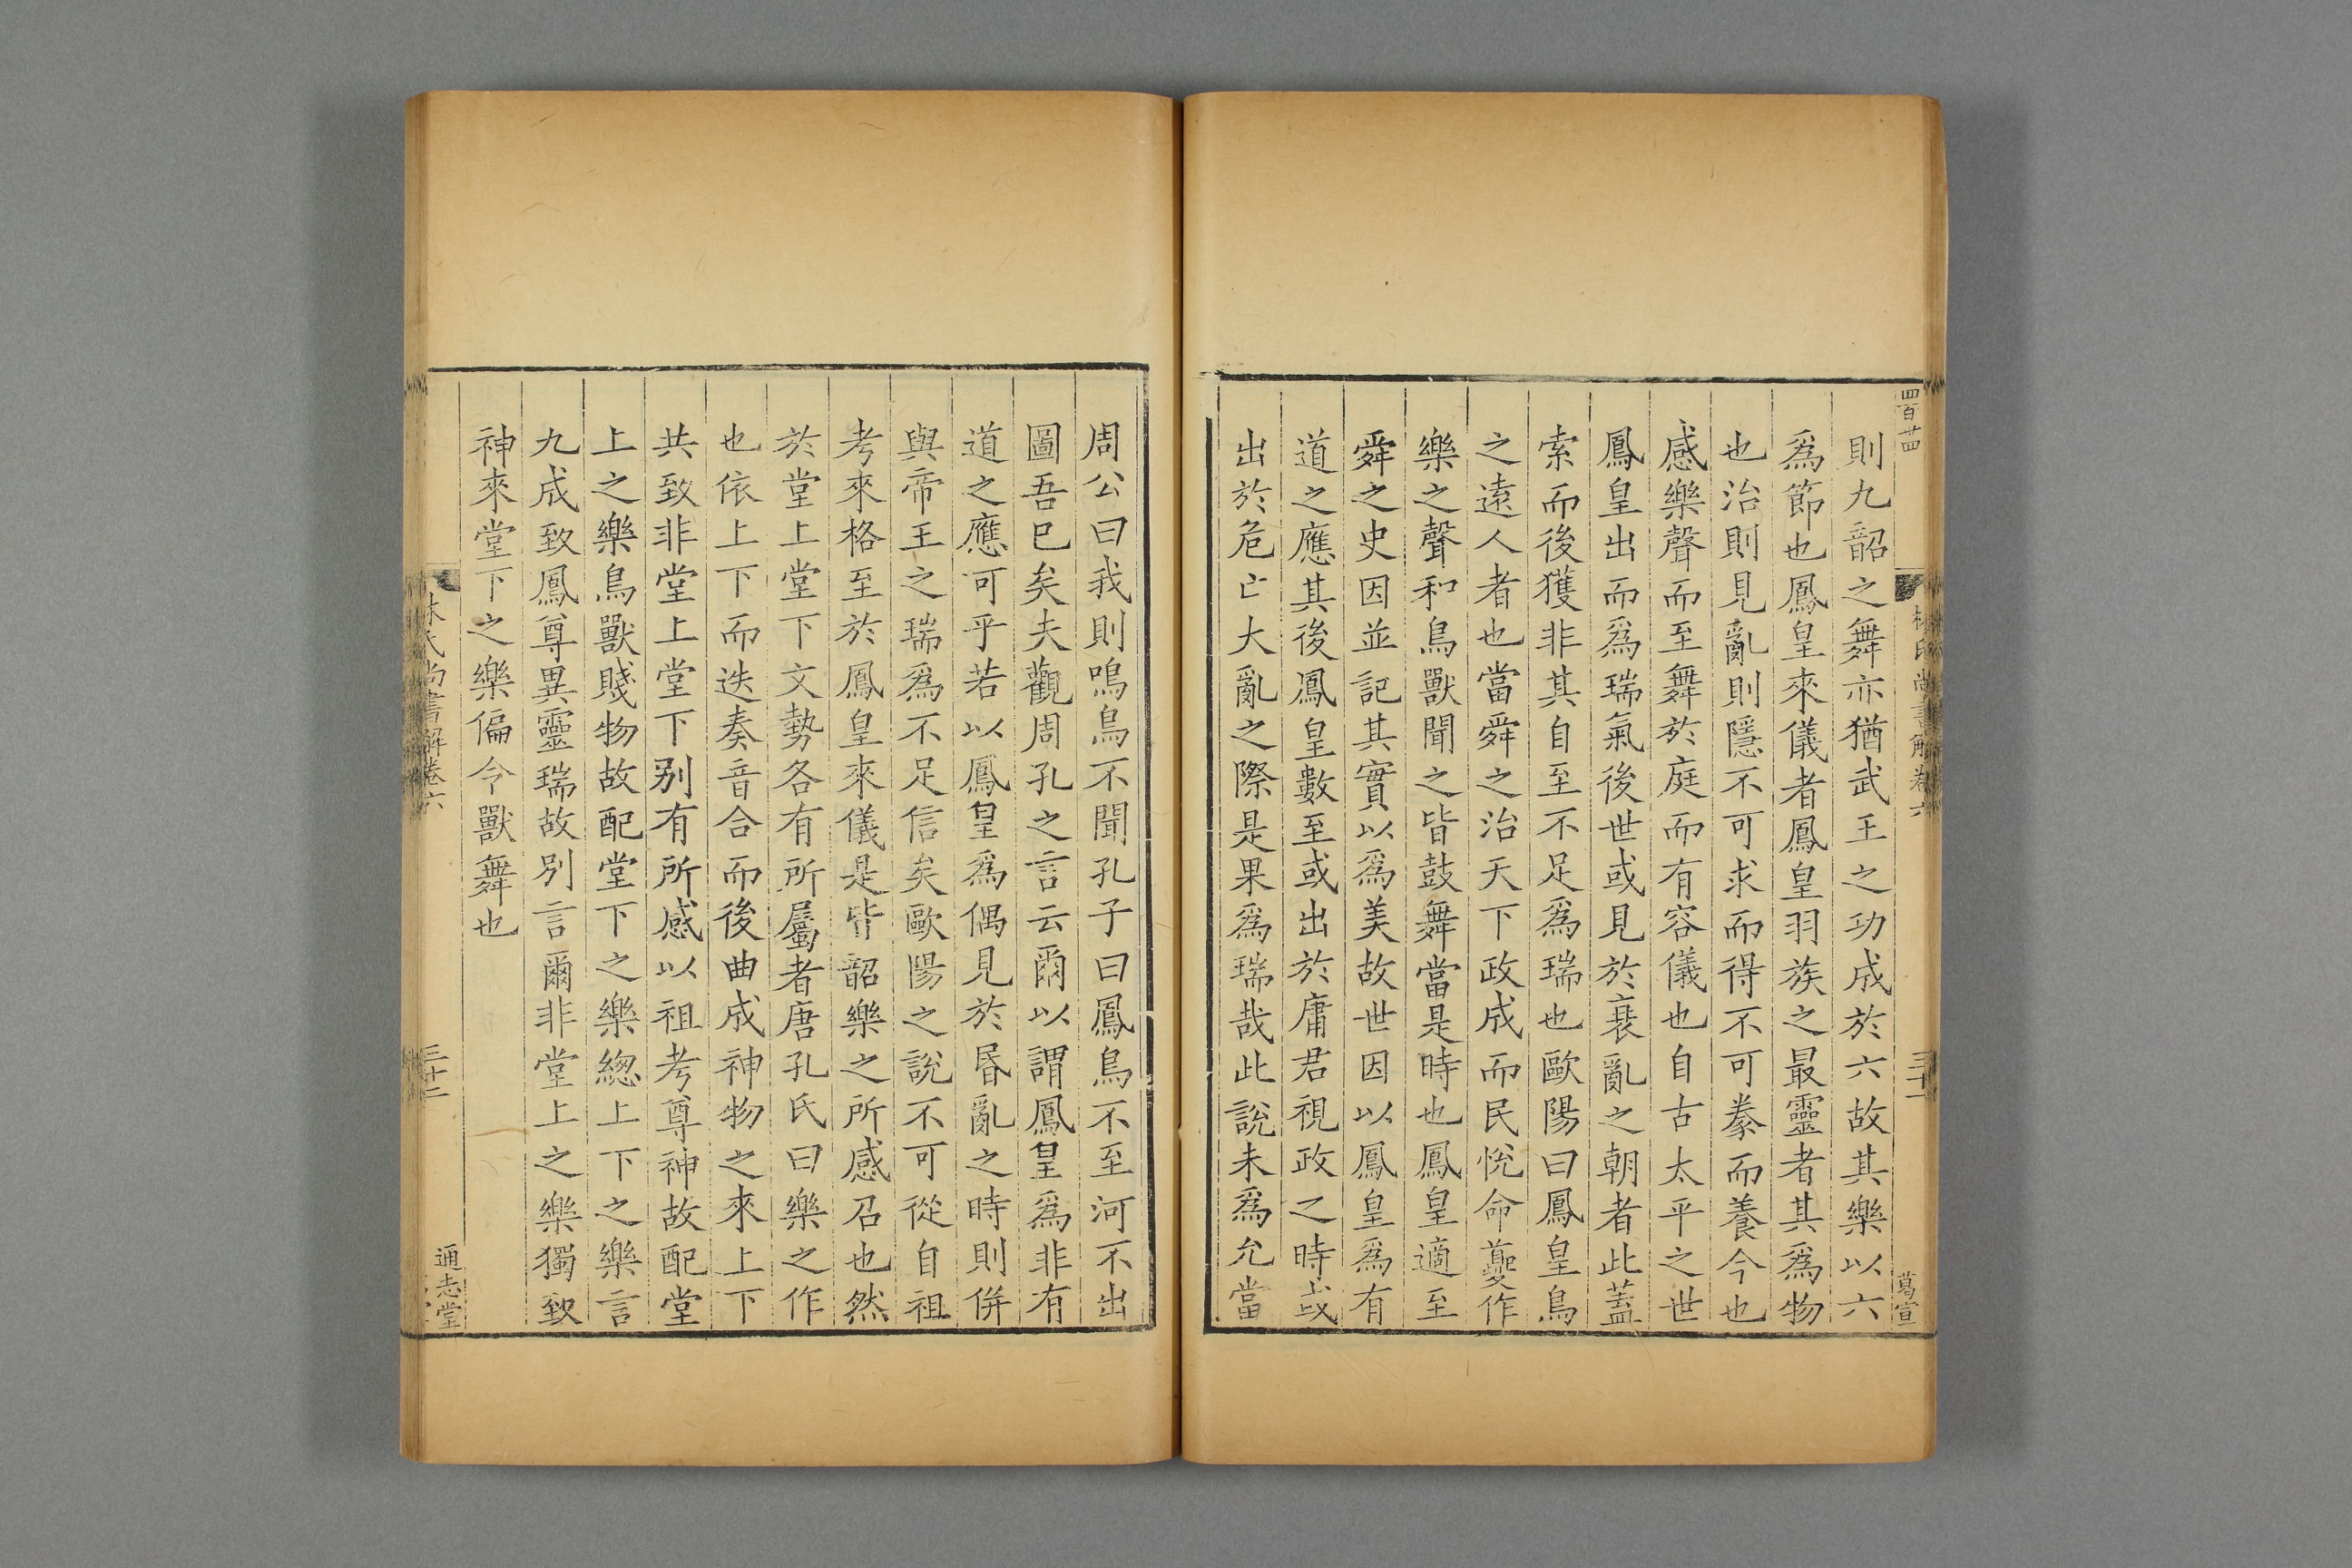 四百廿四
則九韶之舞亦猶武王之功成於六故其樂以六
爲節也鳳皇來儀者鳳皇羽族之最靈者其爲物
也治則見亂則隱不可求而得不可豢而養今也
感樂聲而至舞於庭而有容儀也自古太平之世
鳳皇出而爲瑞氣後世或見於衰亂之朝者此蓋
索而後獲非其自至不足爲瑞也歐陽曰鳳皇鳥
之遠人者也當舜之治天下政成而民悅命夔作
樂之聲和鳥獸聞之皆鼓舞當是時也鳳皇適至
舜之史因並記其實以爲美故世因以鳳皇爲有
道之應其後鳳皇數至或出於庸君視政之時或
出於危亡大亂之際是果爲瑞哉此說未爲允當
林氏尚書解卷六
葛宣
周公曰我則鳴鳥不聞孔子曰鳳鳥不至河不出
圖吾已矣夫觀周孔之言云爾以謂鳳皇爲非有
道之應可乎若以鳳皇爲偶見於昬亂之時則併
與帝王之瑞爲不足信矣歐陽之說不可從自祖
考來格至於鳳皇來儀是皆韶樂之所感召也然
於堂上堂下文勢各有所屬者唐孔氏曰樂之作
也依上下而迭奏音合而後曲成神物之來上下
共致非堂上堂下别有所感以祖考尊神故配堂
上之樂鳥獸賤物故配堂下之樂緫上下之樂言
九成致鳳尊異靈瑞故别言爾非堂上之樂獨致
神來堂下之樂偏令獸舞也
林氏尚書解卷六
三十二
通志堂